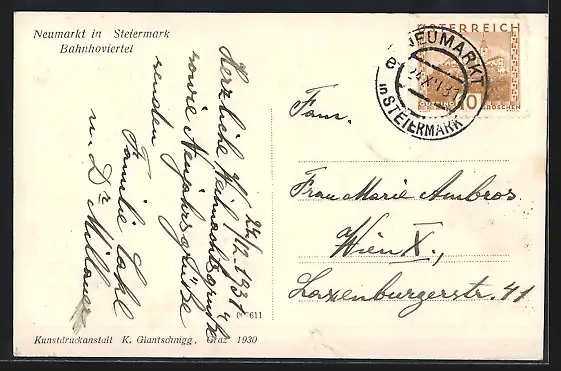 Neumarkt in Steiermark
Bahnhoviertel
24/12. 1931
Herzliche Weihnachtsgrüße
sowie Neujahrsgrüße
senden
Familie
u. Dr
611
Kunstdruckanstalt K. Glantschnigg, Graz 1930
ÖSTERREICH
10
GROSCHEN
NEUMARKT
in STEIERMARK
Fam.
Frau Marie Ambros
Wien X.,
Laxenburgerstr. 41